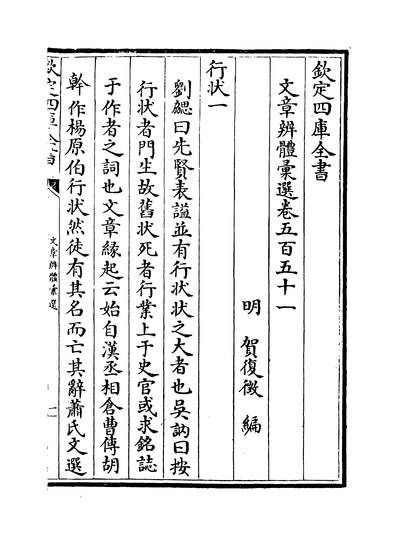 欽定四庫全書
文章辨體彙選卷五百五十一
明 賀復徵 編
行狀一
劉勰曰先賢表諡並有行狀狀之大者也吳訥曰按
行狀者門生故舊狀死者行業上于史官或求銘誌
于作者之詞也文章緣起云始自漢丞相倉曹傅胡
幹作楊原伯行狀然徒有其名而亡其辭蕭氏文選
欽定四庫全書
文章辨體彙選